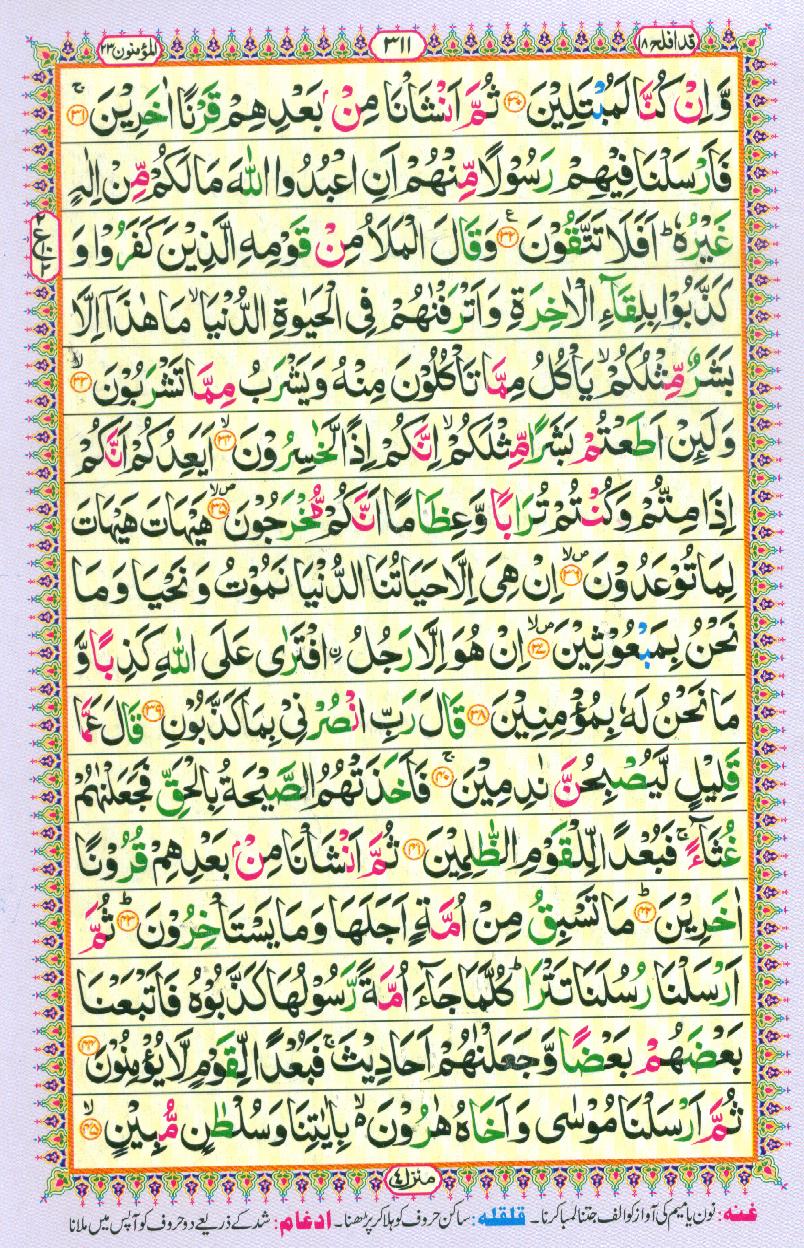 قد افلح ۱۸
۳۱۱
المؤمنون ۲۳
وَّاِنْ كُنَّا لَمُبْتَلِیْنَ ﴿۳۰﴾ ثُمَّ اَنْشَاْنَا مِنْۢ بَعْدِهِمْ قَرْنًا اٰخَرِیْنَ ۚ﴿۳۱﴾
فَاَرْسَلْنَا فِیْهِمْ رَسُوْلًا مِّنْهُمْ اَنِ اعْبُدُوا اللّٰهَ مَا لَكُمْ مِّنْ اِلٰهٍ
غَیْرُهٗ ؕ اَفَلَا تَتَّقُوْنَ ﴿۳۲﴾ ع وَقَالَ الْمَلَاُ مِنْ قَوْمِهِ الَّذِیْنَ كَفَرُوْا وَ
كَذَّبُوْا بِلِقَآءِ الْاٰخِرَةِ وَاَتْرَفْنٰهُمْ فِی الْحَیٰوةِ الدُّنْیَا ۙ مَا هٰذَاۤ اِلَّا
بَشَرٌ مِّثْلُكُمْ ۙ یَاْكُلُ مِمَّا تَاْكُلُوْنَ مِنْهُ وَیَشْرَبُ مِمَّا تَشْرَبُوْنَ ۪ۙ﴿۳۳﴾
وَلَىِٕنْ اَطَعْتُمْ بَشَرًا مِّثْلَكُمْ ۙ اِنَّكُمْ اِذًا لَّخٰسِرُوْنَ ۙ﴿۳۴﴾ اَیَعِدُكُمْ اَنَّكُمْ
اِذَا مِتُّمْ وَكُنْتُمْ تُرَابًا وَّعِظَامًا اَنَّكُمْ مُّخْرَجُوْنَ ۪ۙ﴿۳۵﴾ هَیْهَاتَ هَیْهَاتَ
لِمَا تُوْعَدُوْنَ ۪ۙ﴿۳۶﴾ اِنْ هِیَ اِلَّا حَیَاتُنَا الدُّنْیَا نَمُوْتُ وَنَحْیَا وَمَا
نَحْنُ بِمَبْعُوْثِیْنَ ۪ۙ﴿۳۷﴾ اِنْ هُوَ اِلَّا رَجُلُ ن افْتَرٰی عَلَی اللّٰهِ كَذِبًا وَّ
مَا نَحْنُ لَهٗ بِمُؤْمِنِیْنَ ﴿۳۸﴾ قَالَ رَبِّ انْصُرْنِیْ بِمَا كَذَّبُوْنِ ﴿۳۹﴾ قَالَ عَمَّا
قَلِیْلٍ لَّیُصْبِحُنَّ نٰدِمِیْنَ ۚ﴿۴۰﴾ فَاَخَذَتْهُمُ الصَّیْحَةُ بِالْحَقِّ فَجَعَلْنٰهُمْ
غُثَآءً ۚ فَبُعْدًا لِّلْقَوْمِ الظّٰلِمِیْنَ ﴿۴۱﴾ ثُمَّ اَنْشَاْنَا مِنْۢ بَعْدِهِمْ قُرُوْنًا
اٰخَرِیْنَ ؕ﴿۴۲﴾ مَا تَسْبِقُ مِنْ اُمَّةٍ اَجَلَهَا وَمَا یَسْتَاْخِرُوْنَ ؕ﴿۴۳﴾ ثُمَّ
اَرْسَلْنَا رُسُلَنَا تَتْرَا ؕ كُلَّمَا جَآءَ اُمَّةً رَّسُوْلُهَا كَذَّبُوْهُ فَاَتْبَعْنَا
بَعْضَهُمْ بَعْضًا وَّجَعَلْنٰهُمْ اَحَادِیْثَ ۚ فَبُعْدًا لِّقَوْمٍ لَّا یُؤْمِنُوْنَ ﴿۴۴﴾
ثُمَّ اَرْسَلْنَا مُوْسٰی وَاَخَاهُ هٰرُوْنَ ۙ۬ بِاٰیٰتِنَا وَسُلْطٰنٍ مُّبِیْنٍ ۙ﴿۴۵﴾
منزل ۴
غنه: نون یا میم کی آواز کو الف جتنا لمبا کرنا۔ قلقله: ساکن حروف کو ہلا کر پڑھنا۔ ادغام: شد کے ذریعے دو حروف کو آپس میں ملانا